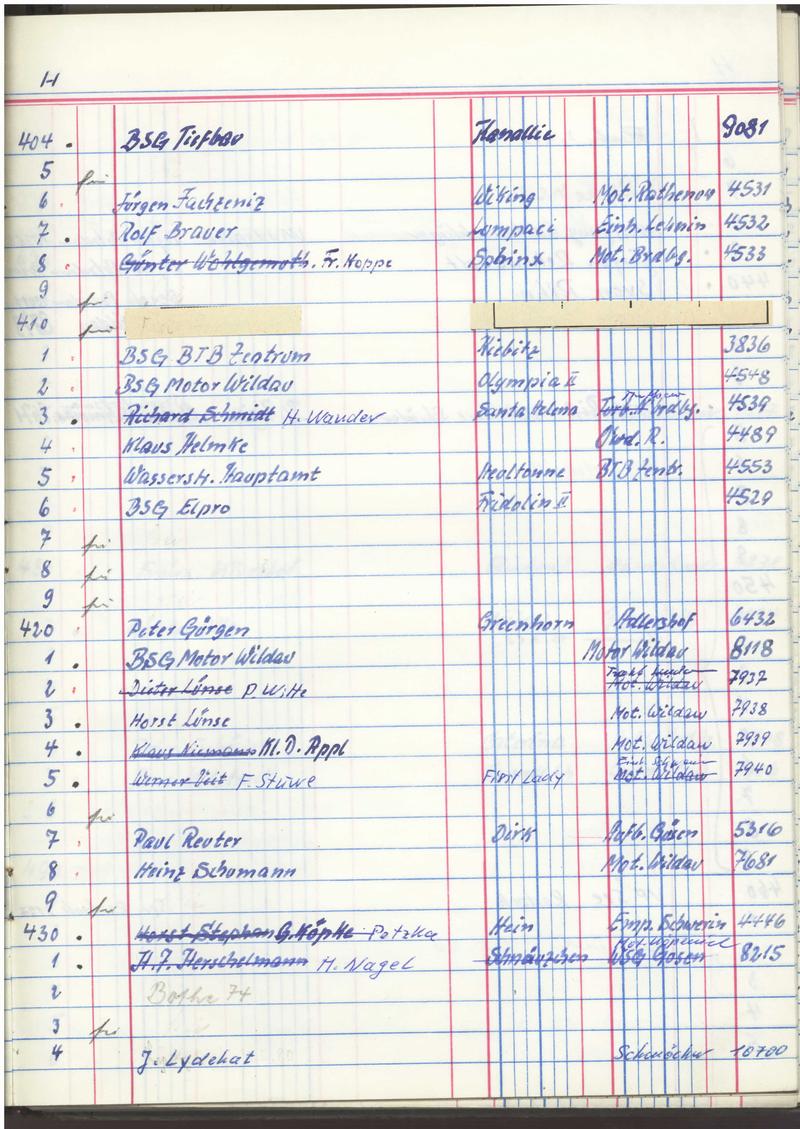 H
404 . BSG Tiefbau Kanallie 9081
5 frei
6 . Jürgen Fachzeniz Wiking Mot. Rathenow 4531
7 . Rolf Brauer Lumpaci Einh. Lehnin 4532
8 . Günter Wohlgemuth. Fr. Hoppe Sphinx Mot. Brdbg. 4533
9 frei
410 frei
1 . BSG BTB Zentrum Kiebitz 3836
2 . BSG Motor Wildau Olympia II 4548
3 . Richard Schmidt H. Wander Santa Helena Brdbg. 4539
4 . Klaus Helmke R. 4489
5 . Wasserstr. Hauptamt Heultonne BTB Zentr. 4553
6 . BSG Elpro Fridolin II 4529
7 frei
8 frei
9 frei
420 Peter Görgen Greenhorn Adlershof 6432
1 . BSG Motor Wildau Motor Wildau 8118
2 . Dieter Lönse P. Witte Mot. Wildau 7937
3 . Horst Lönse Mot. Wildau 7938
4 . Klaus Niemann Kl. D. Appl Mot. Wildau 7939
5 . Werner Veit F. Stüwe First Lady Mot. Wildau 7940
6 frei
7 . Paul Reuter Dirk Aufb. Gosen 5316
8 . Heinz Schumann Mot. Wildau 7681
9 frei
430 . Horst Stephan G. Köpke Petzka Hein Emp. Schwerin 4446
1 . H.J. Herschelmann H. Nagel Schnäuzchen WSG Gosen 8215
2 Bothe 74
3 frei
4 J. Lydekat Schmöckw 10700